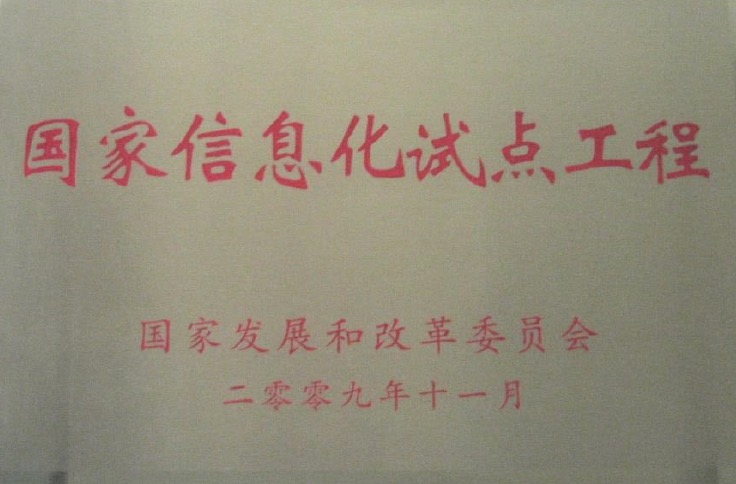 国家信息化试点工程
国家发展和改革委员会
二零零九年十一月